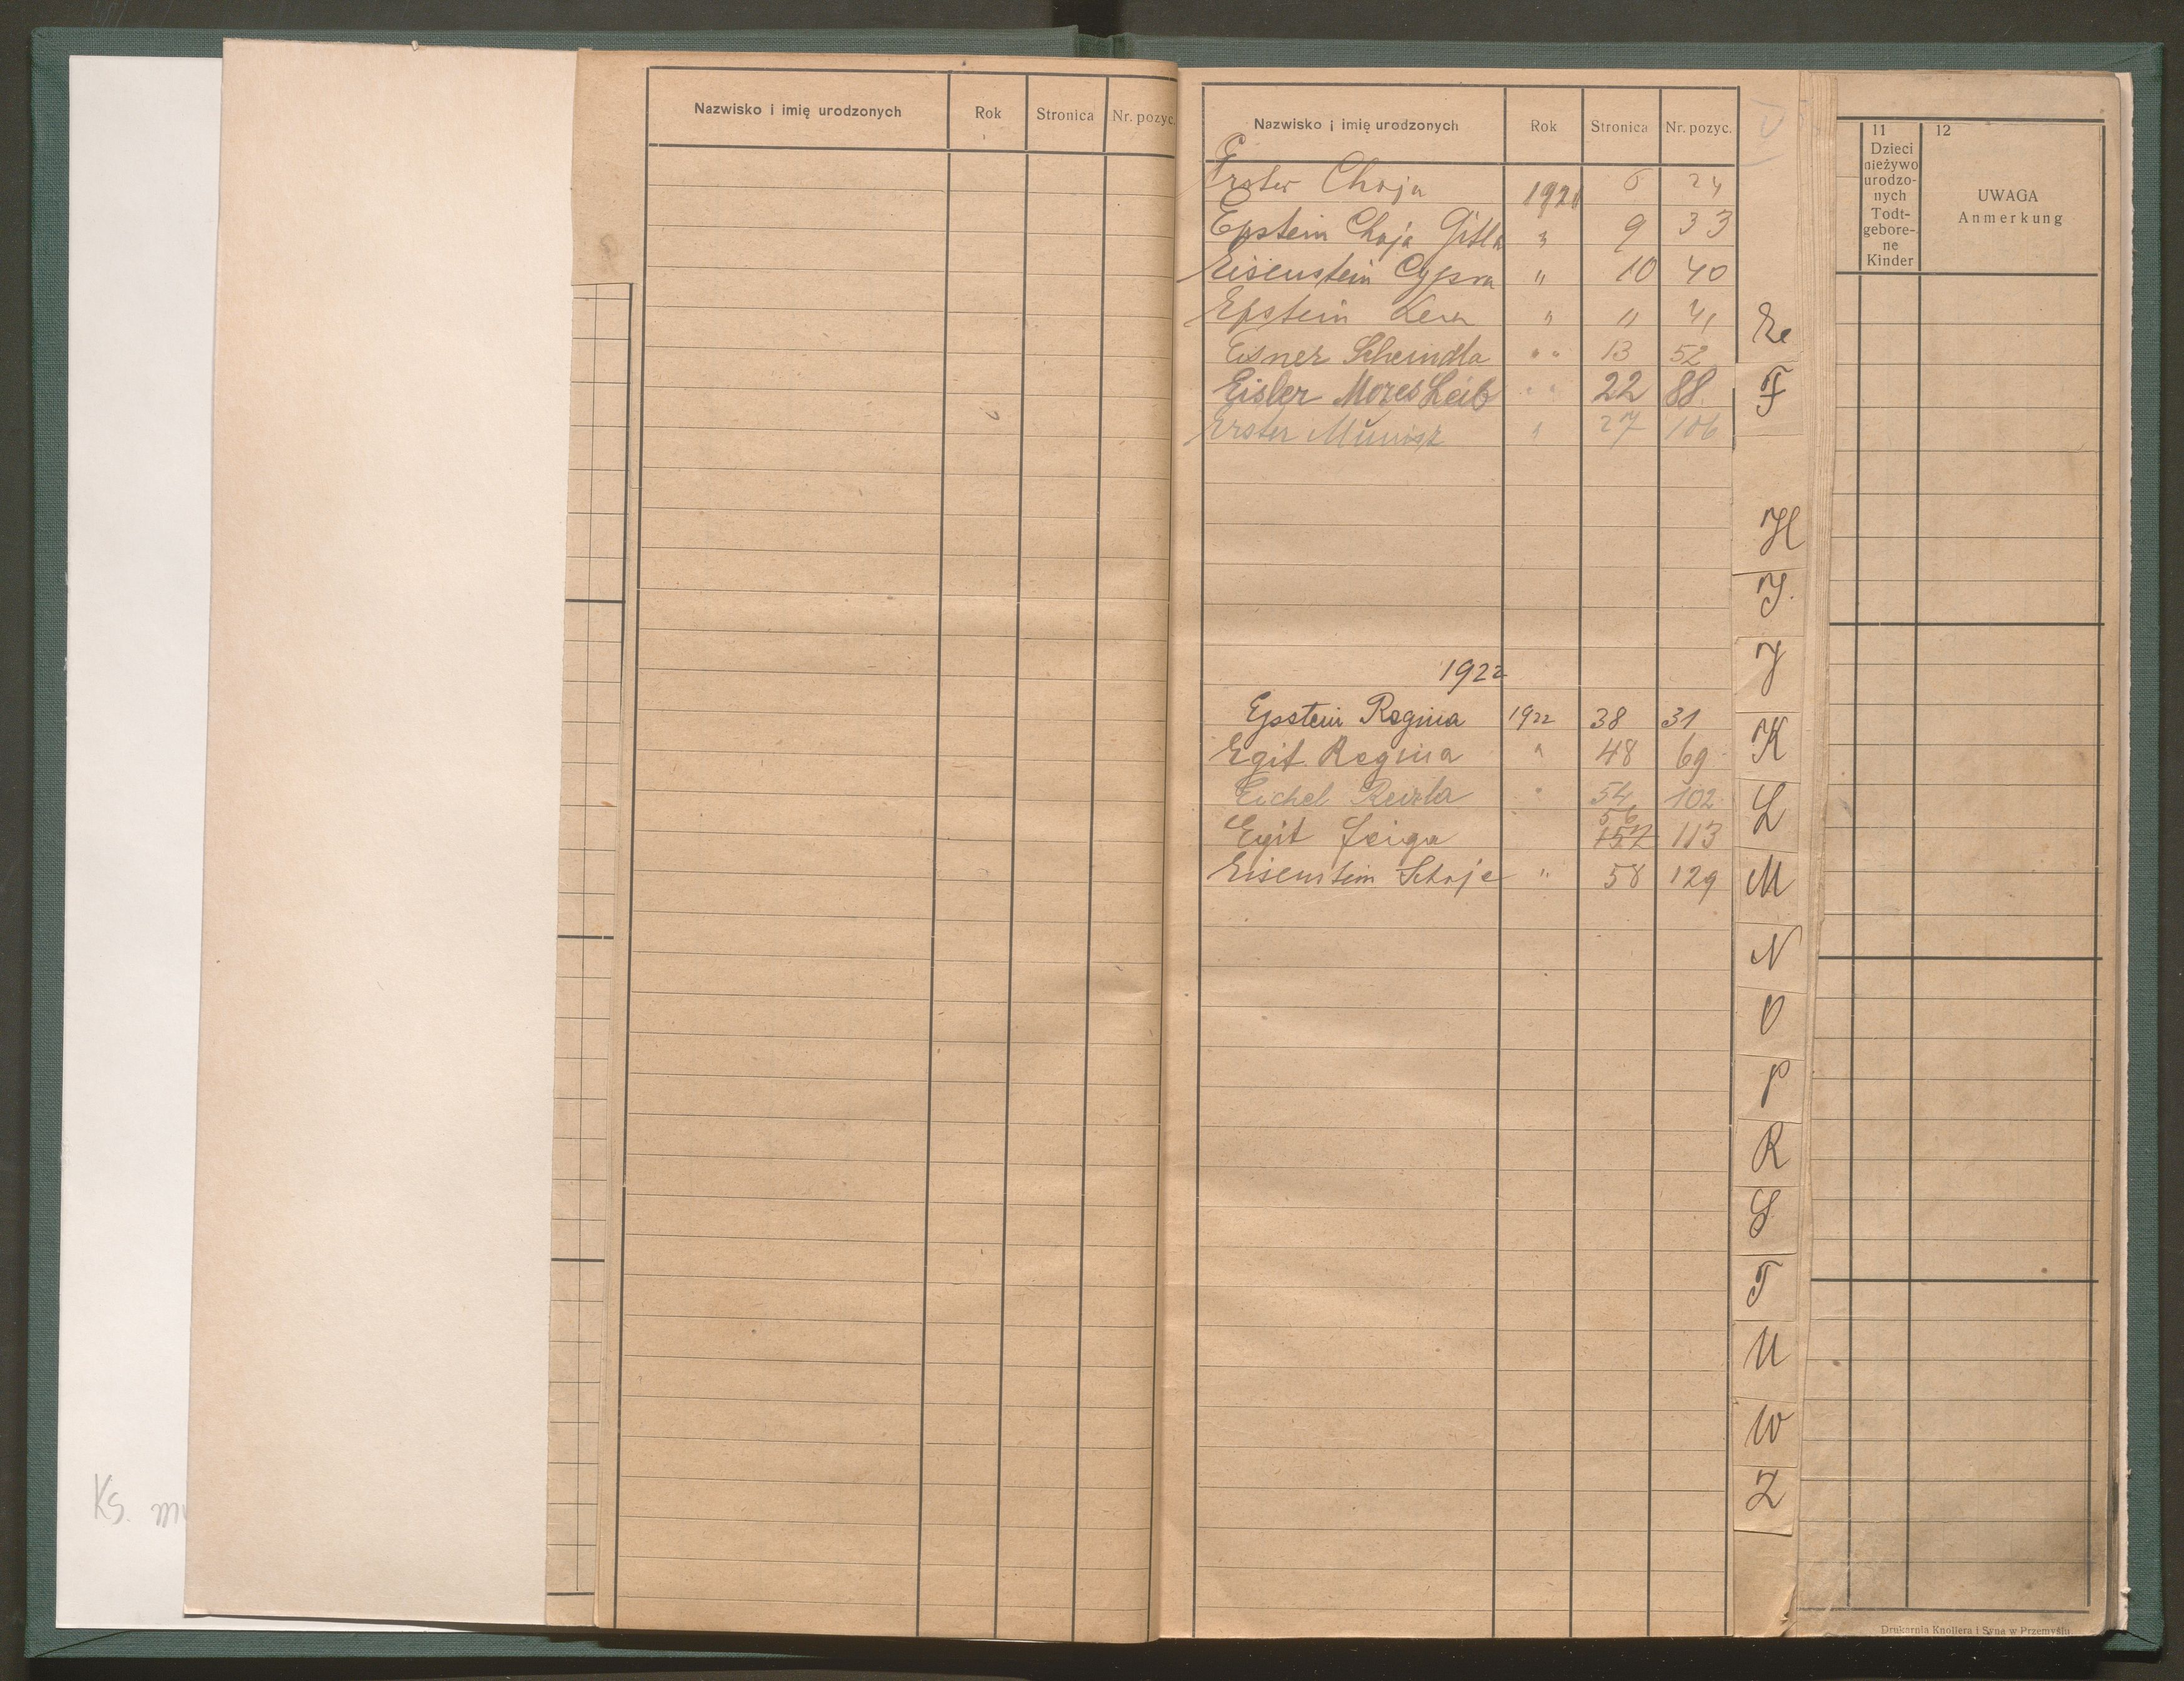 Nazwisko i imię urodzonych Rok Stronica Nr. pozyc.
Ks.
Nazwisko i imię urodzonych Rok Stronica Nr. pozyc.
Erster Chaja 1921 6 24
Epstein Chaja Gitla " 9 33
Eisenstein Cypra " 10 40
Epstein " 11 41
Eisner Scheindla " " 13 52
Eisler Mozes Leib " " 22 88
Erster " 27 106
1922
Epstein Regina 1922 38 31
Egit Regina " 48 69
Eichel Reizla " 54 102
Egit Feiga 56 157 113
Eisenstein " 58 129
F
H
I
J
K
L
M
N
O
P
R
S
T
U
W
Z
11 12
Dzieci
nieżywo
urodzo-
nych
Todt-
gebore-
ne
Kinder
UWAGA
Anmerkung
Drukarnia Knollera i Syna w Przemyślu